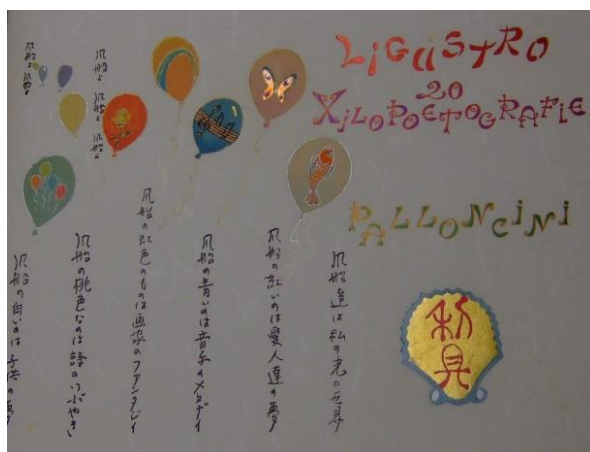 LiGuStRO
20
XiLOPOEtOGRAFIE
PALLONCiNi
風船達は私の光の世界
風船の紅いのは愛人達の夢
風船の青いのは音楽のメロデイ
風船の虹色のものは画家のファンタジイ
風船の桃色なのは詩のつぶやき
風船の白いのは子供の夢
風船よ 風船よ 風船よ
風船よ 風船よ
利